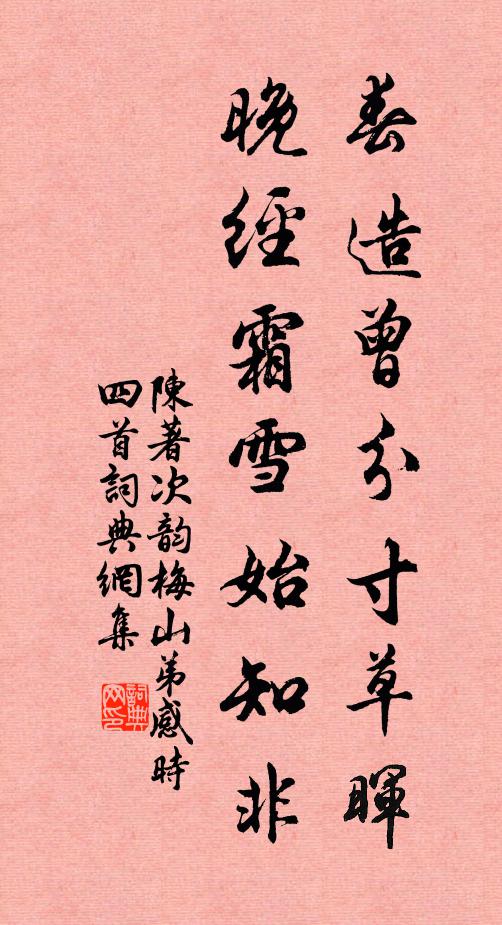 春造曾分寸草暉
晚經霜雪始知非
陳著次韵梅山弟感時
四首詞典網集
詞典
网印